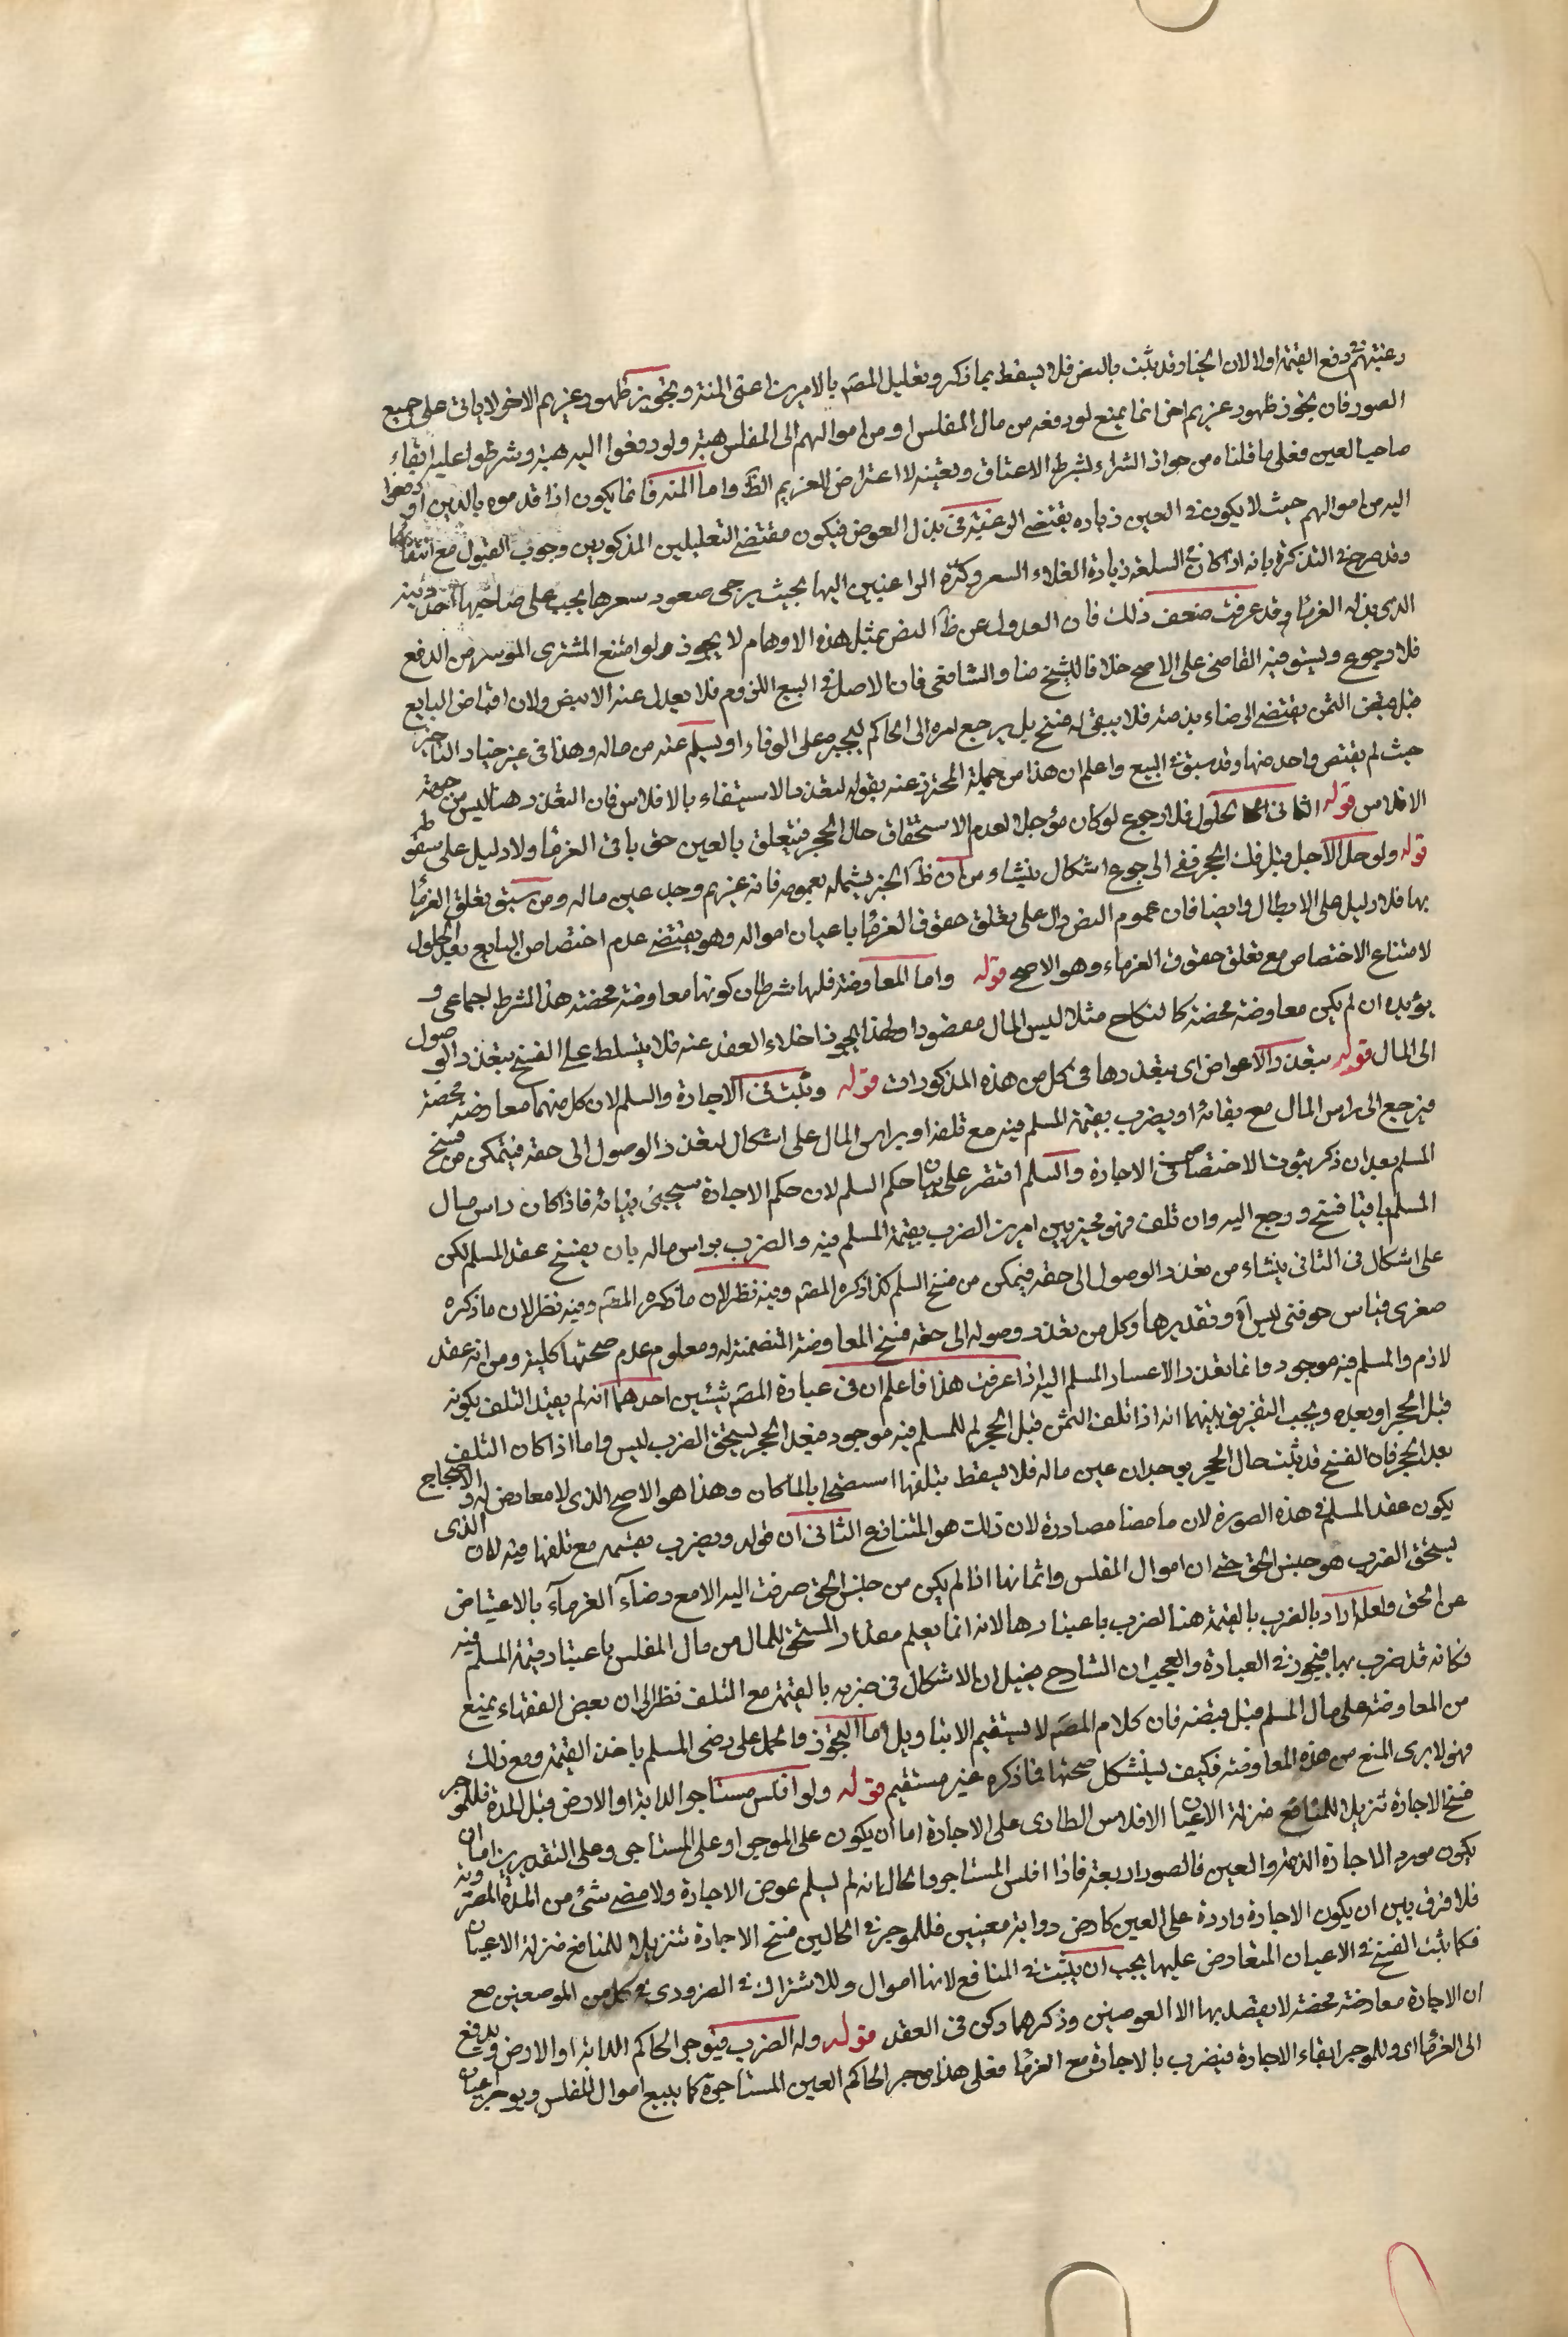 رغبتهم في دفع القيمة اولا لان الخيار قد ثبت بالنص فلا يسقط بما ذكر وتعليل المصّ بالامرين اعنى المنة وتجويز ظهور غريم الاخر لا ياتى على جميع
الصور فان تجوز ظهور غريم اخر انما يمنع لو دفعه من مال المفلس او من اموالهم الى المفلس هبة ولو دفعوا اليه هبة وشرطوا عليه ايفاء
صاحب العين فعلى ما قلناه من جواز الشراء بشرط الاعتاق وتعينه لا اعتراض للغريم الظّ واما المنه فانما يكون اذا قدموه بالدين او دفعوا
اليه من اموالهم حيث لا يكون فى العين زياده يقتضى الرغبة فى بذل العوض فيكون مقتضى التعليلين المذكورين وجوب القبول مع انتفائهما
وقد صرح فى التذكرة بانه اذا كان فى السلعة زيادة لغلاء السعر وكثرة الراغبين اليها بحيث يرجى صعود سعرها يجب على صاحبها اخذ دينه
الذى بذله الغرمّا وقد عرفت ضعف ذلك فان العدول عن ظّ النص بمثل هذه الاوهام لا يجوز قوله ولو امتنع المشترى الموسر من الدفع
فلا رجوع ويستوفيه القاضى على الاصح خلافا للشيخ منا والشافعى فان الاصل فى البيع اللزوم فلا يعدل عنه الا بنص ولان اقباض البايع
قبل قبض الثمن يقتضى الرضاء بذمته فلا يبقى له فسخ بل يرجع امره الى الحاكم ليجبره على الوفاء او يسلم عنه من ماله وهذا فى غير خيار التاخير
حيث لم يقبض واحد منهما وقد سبق فى البيع واعلم ان هذا من جملة المحترز عنه بقوله لتعذر الاستيفاء بالافلاس فان التعذر هنا ليس من جهة
الافلاس قوله الثانى الحلول فلا رجوع لو كان مؤجلا لعدم الاستحقاق حال الحجر فيتعلق بالعين حق باقى الغرمّا ولا دليل على سقوطه
قوله ولو حل الاجل قبل فك الحجر ففى الرجوع اشكال ينشاء من ان ظّ الخبر يشمله بعمومه فانه غريم وجد عين ماله ومن سبق تعلق الغرمّا
بها فلا دليل على الابطال وايضا فان عموم النص دال على تعلق حقوق الغرمّا باعيان امواله وهو يقتضى عدم اختصاص البايع بعد الحلول
لامتناع الاختصاص مع تعلق حقوق الغرماء وهو الاصح قوله واما المعاوضة فلها شرطان كونها معاوضة محضة هذا الشرط اجماعى و
يؤيده ان لم يكن معاوضة محضة كالنكاح مثلا ليس المال مقصودا ولهذا يجوز اخلاء العقد عنه فلا يتسلط على الفسخ بتعذر الوصول
الى المال قوله بتعذر الاعواض اى بتعذرها فى كل من هذه المذكورات قوله ويثبت فى الاجارة والسلم لان كل منهما معاوضة محضة
فيرجع الى راس المال مع بقائه او يضرب بقيمة المسلم فيه مع تلفه او براس المال على اشكال لتعذر الوصول الى حقه فيتمكن من فسخ
المسلم بعد ان ذكر ثبوت الاختصاص فى الاجارة والسلم اقتصر على بيان حكم السلم لان حكم الاجارة سيجئ بيانه فاذا كان راس مال
المسلم باقيا فسخ ورجع اليه وان تلف فهو مخير بين امرين الضرب بقيمة المسلم فيه والضرب براس ماله بان يفسخ عقد المسلم لكن
على اشكال فى الثانى ينشاء من تعذر الوصول الى حقه فيمكن من فسخ السلم كذا ذكره المصّ وفيه نظر لان ما ذكره المصّ وفيه نظر لان ما ذكره
صغرى قياس حذفت ليس آه وتقديرها وكل من تعذر وصوله الى حقه فسخ المعاوضة المتضمنة له ومعلوم عدم صحتها كلية ومن انه عقد
لازم والمسلم فيه موجود وانما تعذر الاعسار المسلم اليه اذا عرفت هذا فاعلم ان فى عبارة المصّ شيئين احدهما انه لم يقيد التلف بكونه
قبل الحجر او بعده ويجب التفريق بينهما انه اذا تلف الثمن قبل الحجر لم للمسلم فيه موجود فبعد الحجر يستحق الضرب ليس واما اذا كان التلف
بعد الحجر فان الفسخ قد ثبت حال الحجر بوجدان عين ماله فلا يسقط بتلفها استصحابا لما كان وهذا هو الاصح الذى لا معارض له والاحتجاج
بكون عقد المسلم فى هذه الصورة لازما محضا مصادرة لان ذلت هو المتنازع الثانى ان قوله ويضرب بقيمته مع تلفها فيه لان الذى
يستحق الضرب هو جنس الحق حتى ان اموال المفلس واثمانها اذا لم يكن من جنس الحق صرفت اليه الا مع رضآء الغرمآء بالاعتياض
عن الحق ولعله اراد بالضرب بالقيمة هنا الضرب باعتبارها لانه انما يعلم مقدار المستحق للمال من مال المفلس باعتبار قيمة المسلم فيه
فكانه قد ضرب بها فتجوز فى العبارة والعجب ان الشارح تخيل ان الاشكال فى ضربه بالقيمة مع التلف نظرا الى ان بعض الفقهاء يمنع
من المعاوضة على مال المسلم قبل قبضه فان كلام المصّ لا يستقيم الا بتاويل اما التجوز والحمل على رضى المسلم باخذ القيمة ومع ذلك
فهو لا يرى المنع من هذه المعاوضة فكيف يستشكل صحتها فما ذكره غير مستقيم قوله ولو افلس مستاجر الدابة او الارض قبل المدة فللموجر
فسخ الاجارة تنزيلا للمنافع منزلة الاعيان الافلاس الطارى على الاجارة اما ان يكون على الموجر او على المستاجر وعلى التقديرين اما ان
يكون مورد الاجارة الذمة والعين فالصور اربعة فاذا افلس المستاجر والحال انه لم يسلم عوض الاجارة ولا مضى شئ من المدة المضروبة
فلا فرق بين ان يكون الاجارة واردة على العين كارض ودابة معينين فللموجر فى الحالين فسخ الاجارة تنزيلا للمنافع منزلة الاعيان
فكما ثبت الفسخ فى الاعيان المتعاوض عليها يجب ان يثبت فى المنافع لانها اموال وللاشتراك فى الضرورى فى كل من الموضعين مع
ان الاجارة معاوضة محضة لا يقصد بها الا العوضين وذكرهما ركن فى العقد قوله وله الضرب فيوجر الحاكم الدابة او الارض ويدفع
الى الغرمّا اى وللموجر ابقاء الاجارة فيضرب بالاجارة مع الغرمّا فعلى هذا يوجر الحاكم العين المستاجرة كما يبيع اموال المفلس ويوجر اعيان